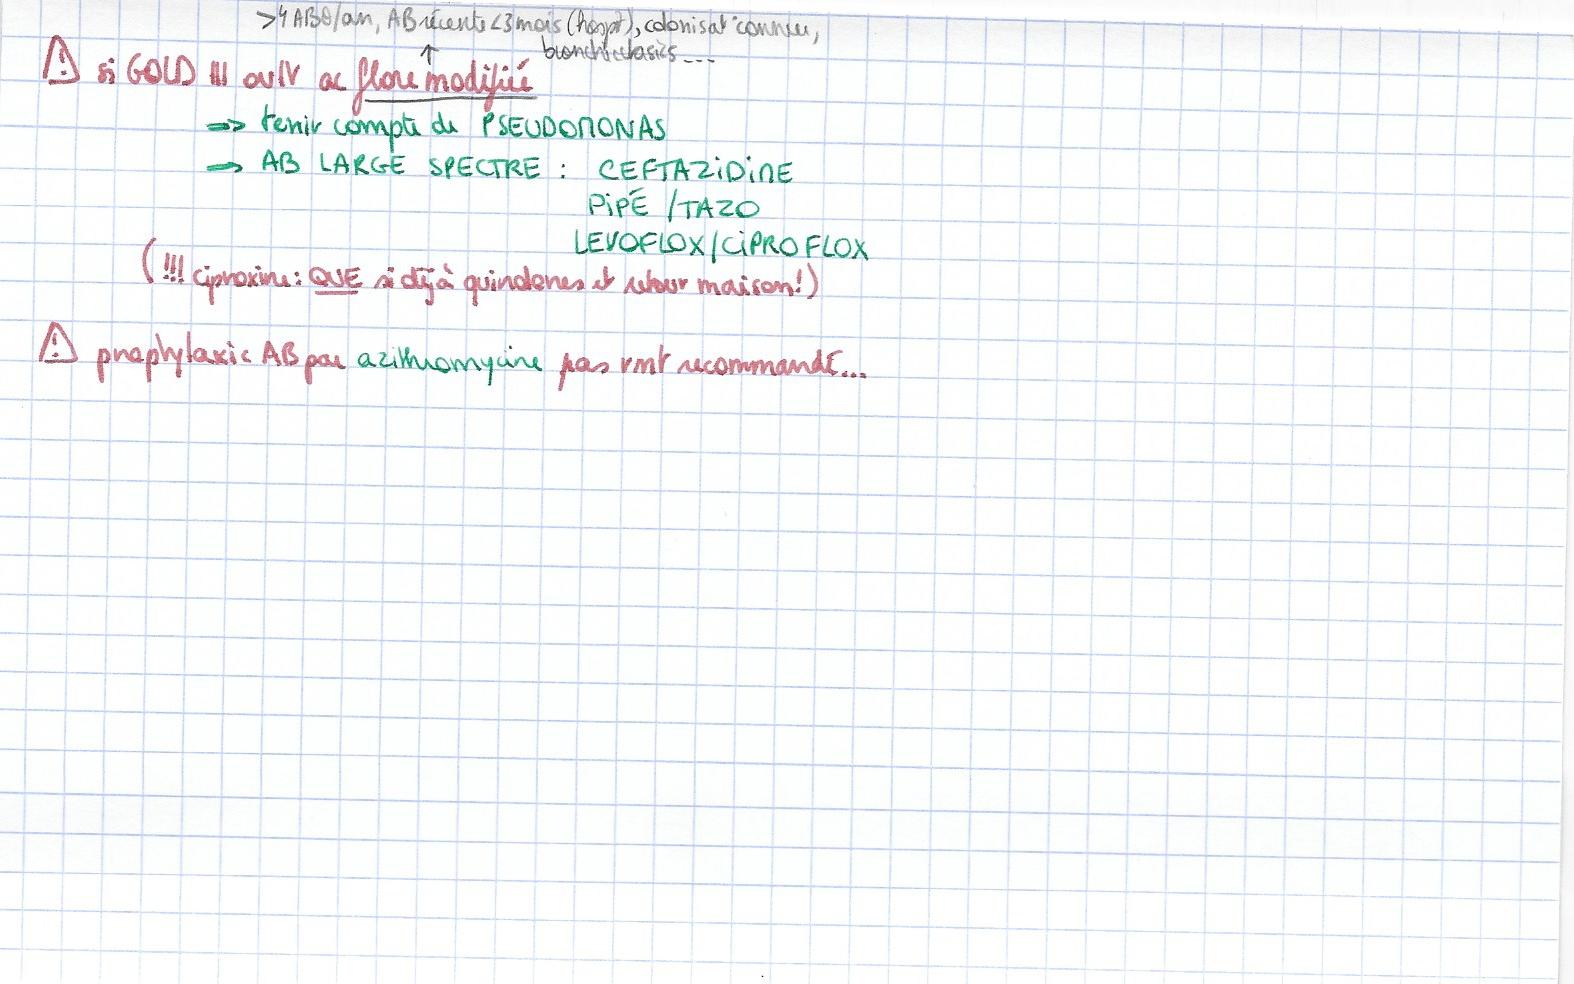 >4 ABθ/an, AB récente <3 mois (hospit), colonisat° connue,
bronchiectasies...
↑
⚠ si GOLD III ou IV ac flore modifiée
=> tenir compte de PSEUDOMONAS
=> AB LARGE SPECTRE : CEFTAZIDIME
PIPÉ /TAZO
LEVOFLOX/CIPROFLOX
(!!! Ciproxine: QUE si déjà quinolones et retour maison!)
⚠ prophylaxie AB par azithromycine pas vmt recommandé...